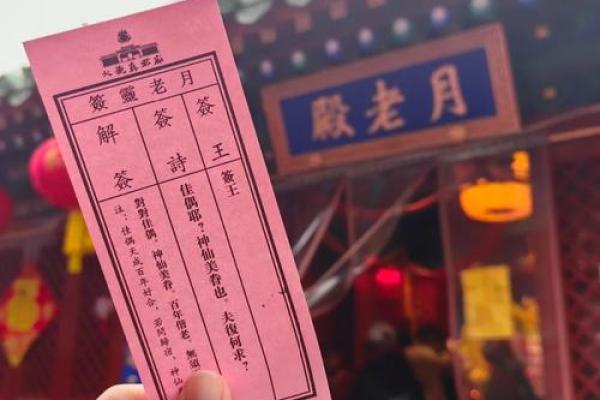 火德真君廟
月老靈簽
簽王
簽王
簽詩
佳偶耶？神仙美眷也。夫復何求？
解簽
對對佳偶，神仙美眷。百年偕老，無須
注：佳偶天成百年好合，若問歸宿，神仙
月老殿